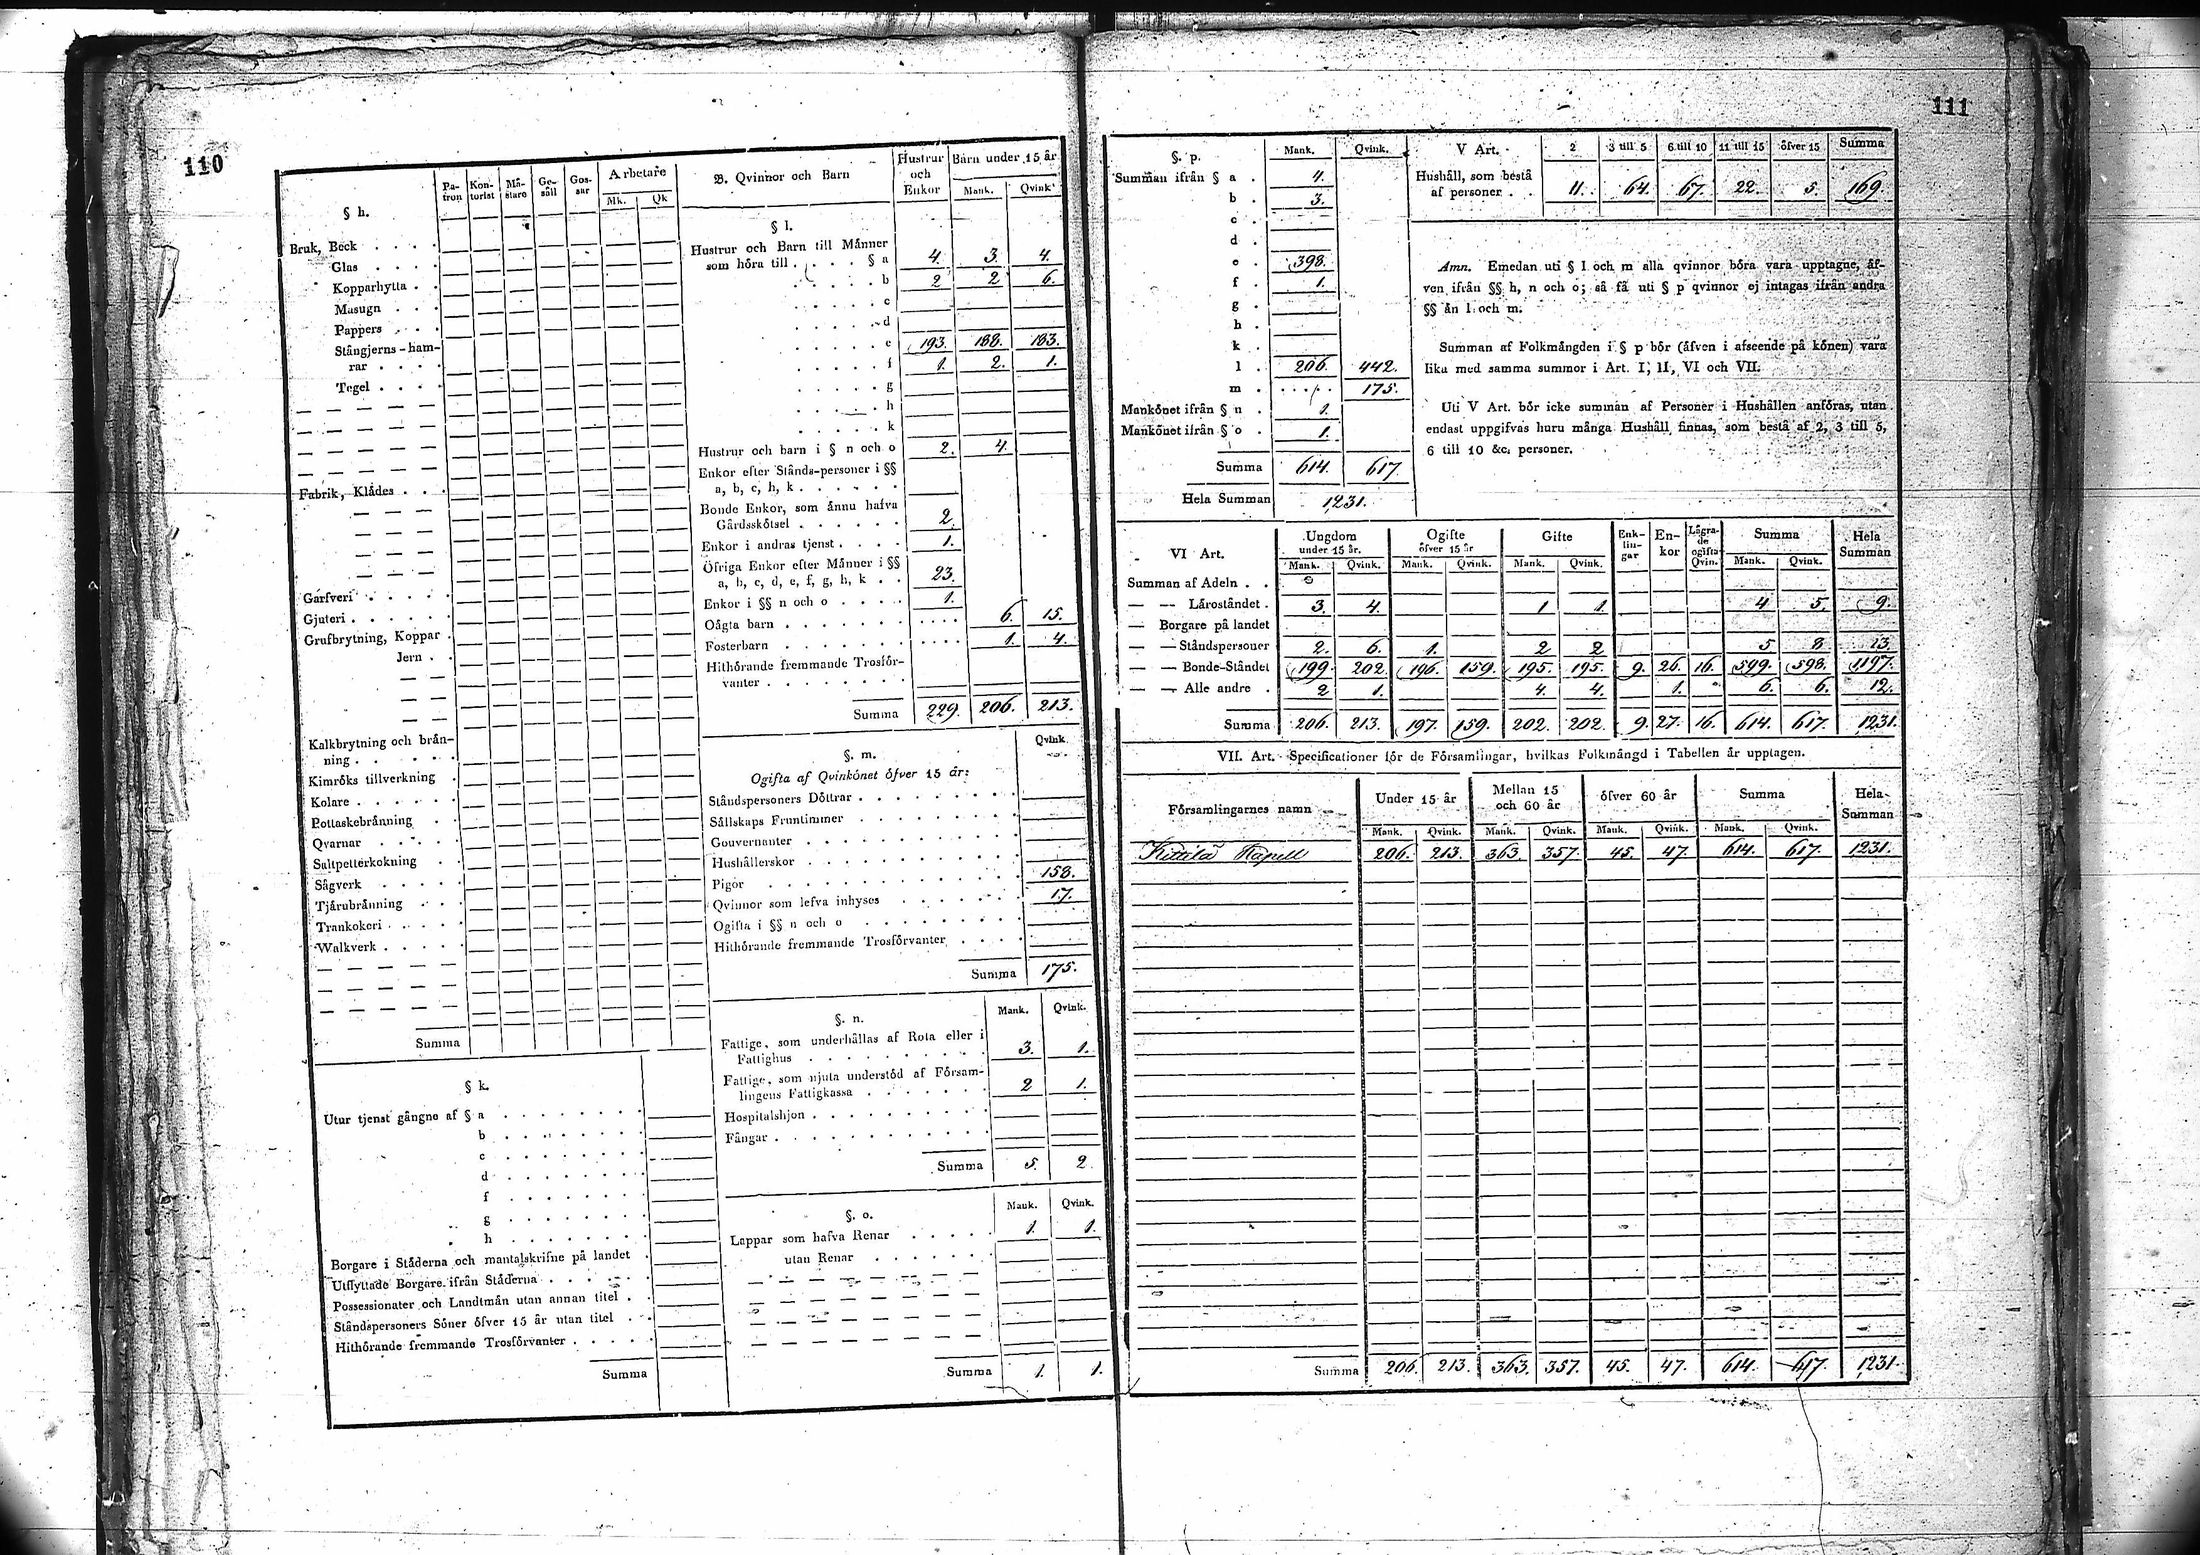 110
§ h.
Pa-tron Kon-torist Må-stare Ge-säll Gos-sar Arbetare Mk. Qk
Bruk, Beck . . . .
Glas . . . .
Kopparhytta . .
Masugn . . .
Pappers . . .
Stångjerns-ham-
rar . . . .
Tegel . . . .
Fabrik, Klådes . . .
Garfveri . . . . .
Gjuteri . . . . . .
Grufbrytning, Koppar .
Jern . .
Kalkbrytning och brån-
ning . . . . . .
Kimröks tillverkning .
Kolare . . . . . .
Pottaskebrånning . .
Qvarnar . . . . .
Saltpetterkokning . .
Sågverk . . . . .
Tjårubrånning . . .
Trankokeri . . . .
Walkverk . . . . .
Summa
§ k.
Utur tjenst gångne af § a . . . . . . .
b . . . . . . .
c . . . . . . .
d . . . . . . .
f . . . . . . .
g . . . . . . .
h . . . . . . .
Borgare i Städerna och mantalskrifne på landet .
Utflyttade Borgare ifrån Städerna . . . . .
Possessionater och Landtmån utan annan titel . .
Ståndspersoners Söner öfver 15 år utan titel . .
Hithörande fremmande Trosförvanter . . . .
Summa
B. Qvinnor och Barn
Hustrur och Enkor Barn under 15 år Mank. Qvink.
§ l.
Hustrur och Barn till Månner
som höra till . . . . § a 4. 3. 4.
. . . . . b 2 2 6.
. . . . . c
. . . . . d
. . . . . e 193. 188. 183.
. . . . . f 1. 2. 1.
. . . . . g
. . . . . h
. . . . . k
Hustrur och barn i § n och o 2. 4.
Enkor efter Stånds-personer i §§
a, b, c, h, k . . . . . .
Bonde Enkor, som ånnu hafva
Gårdsskötsel . . . . . . 2.
Enkor i andras tjenst . . . . 1.
Öfriga Enkor efter Månner i §§
a, b, c, d, e, f, g, h, k . . 23.
Enkor i §§ n och o . . . . 1.
Oågta barn . . . . . . . . . . . 6. 15.
Fosterbarn . . . . . . . . . . . 1. 4.
Hithörande fremmande Trosför-
vanter . . . . . . . .
Summa 229. 206. 213.
§. m. Qvink.
Ogifta af Qvinkönet öfver 15 år:
Ståndspersoners Döttrar . . . . . . . .
Sållskaps Fruntimmer . . . . . . . .
Gouvernanter . . . . . . . . . .
Hushållerskor . . . . . . . . . .
Pigor . . . . . . . . . . . . 158.
Qvinnor som lefva inhyses . . . . . . 17.
Ogifta i §§ n och o . . . . . . . .
Hithörande fremmande Trosförvanter . . . .
Summa 175.
§. n. Mank. Qvink.
Fattige, som underhållas af Rota eller i
Fattighus . . . . . . . . . 3. 1.
Fattige, som njuta understöd af Försam-
lingens Fattigkassa . . . . . . 2 1.
Hospitalshjon . . . . . . . . . .
Fångar . . . . . . . . . . . .
Summa 5. 2.
§. o. Mank. Qvink.
Lappar som hafva Renar . . . . . 1. 1.
utan Renar . . . . . .
Summa 1. 1.
111
§. p. Mank. Qvink.
Summan ifrån § a . 4.
b . 3.
c .
d .
e . 398.
f . 1.
g .
h .
k .
l . 206. 442.
m . . . . . 175.
Mankönet ifrån § n . 1.
Mankönet ifrån § o . 1.
Summa 614. 617.
Hela Summan 1231.
V Art. 2 3 till 5 6 till 10 11 till 15 öfver 15 Summa
Hushåll, som bestå
af personer . . 11. 64. 67. 22. 5. 169.
Anm. Emedan uti § l och m alla qvinnor böra vara upptagne, äf-
ven ifrån §§ h, n och o; så få uti § p qvinnor ej intagas ifrån andra
§§ än l och m.
Summan af Folkmångden i § p bör (äfven i afseende på könen) vara
lika med samma summor i Art. I, II, VI och VII.
Uti V Art. bör icke summan af Personer i Hushållen anföras, utan
endast uppgifvas huru många Hushåll finnas, som bestå af 2, 3 till 5,
6 till 10 &c. personer.
VI Art. Ungdom under 15 år. Ogifte öfver 15 år Gifte Enk-lin-gar En-kor Lägra-de ogifta Qvin. Summa Hela Summan
Mank. Qvink. Mank. Qvink. Mank. Qvink. Mank. Qvink.
Summan af Adeln . .
— — Låroståndet . 3. 4. 1 1. 4 5. 9.
— Borgare på landet
— — Ståndspersoner 2. 6. 1. 2 2 5 8 13.
— — Bonde-Ståndet 199. 202. 196. 159. 195. 195. 9. 26. 16. 599. 598. 1197.
— — Alle andre . 2 1. 4. 4. 1. 6. 6. 12.
Summa 206. 213. 197. 159. 202. 202. 9. 27. 16. 614. 617. 1231.
VII. Art. Specificationer för de Församlingar, hvilkas Folkmångd i Tabellen är upptagen.
Församlingarnes namn Under 15 år Mellan 15 och 60 år öfver 60 år Summa Hela Summan
Mank. Qvink. Mank. Qvink. Mank. Qvink. Mank. Qvink.
Kittilä Kapell 206. 213. 363. 357. 45. 47. 614. 617. 1231.
Summa 206. 213. 363. 357. 45. 47. 614. 617. 1231.